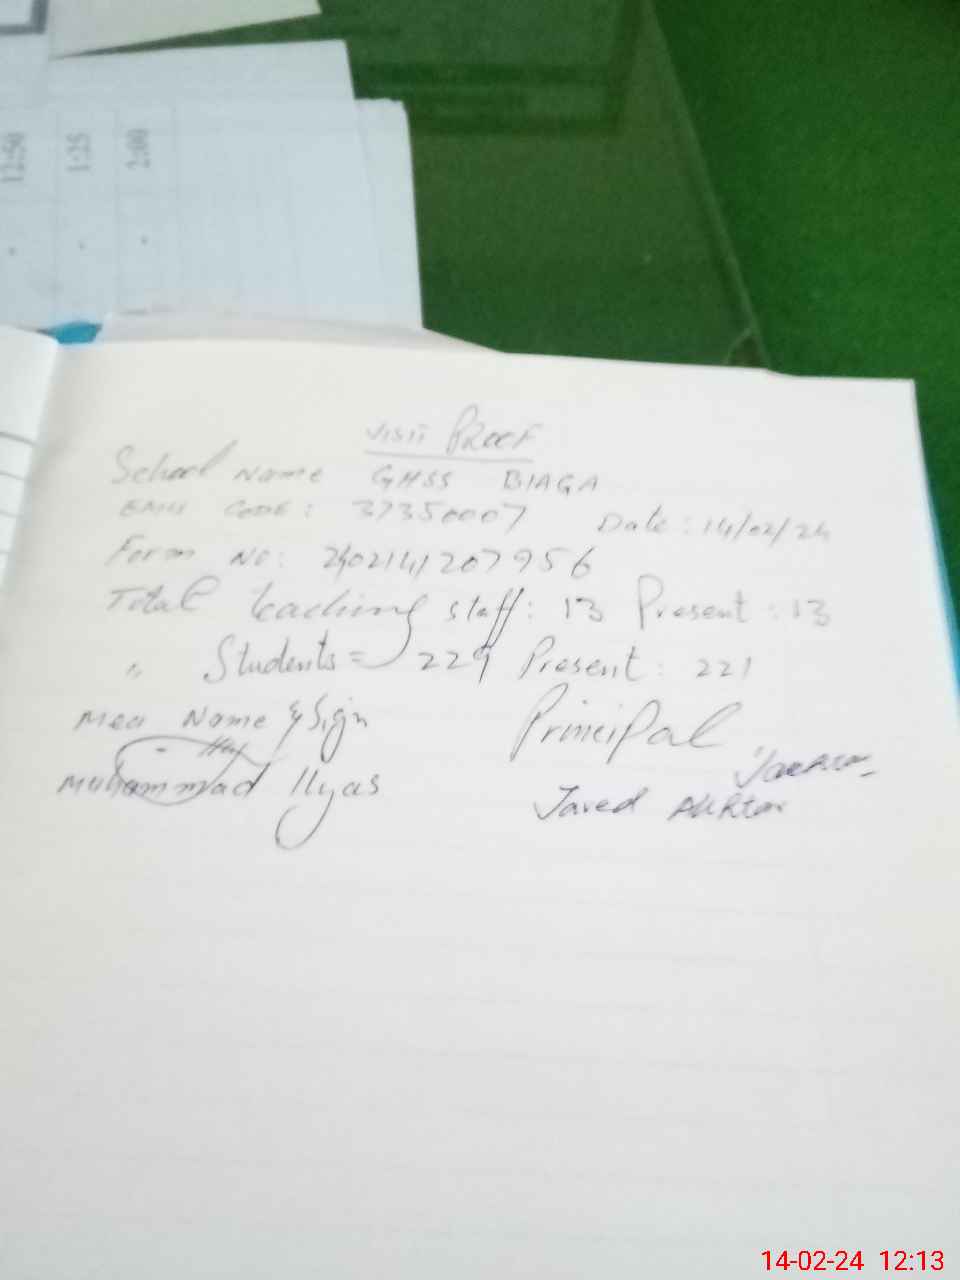 12:50
1:25
2:00
Visit Proof
School Name GHSS BIAGA
EMIS CODE: 37350007 Date: 14/02/24
Form No: 2402141207956
Total teaching staff: 13 Present: 13
" Students = 229 Present: 221
Mea Name & Sign Principal
Muhammad Ilyas Javed Akhtar
14-02-24 12:13